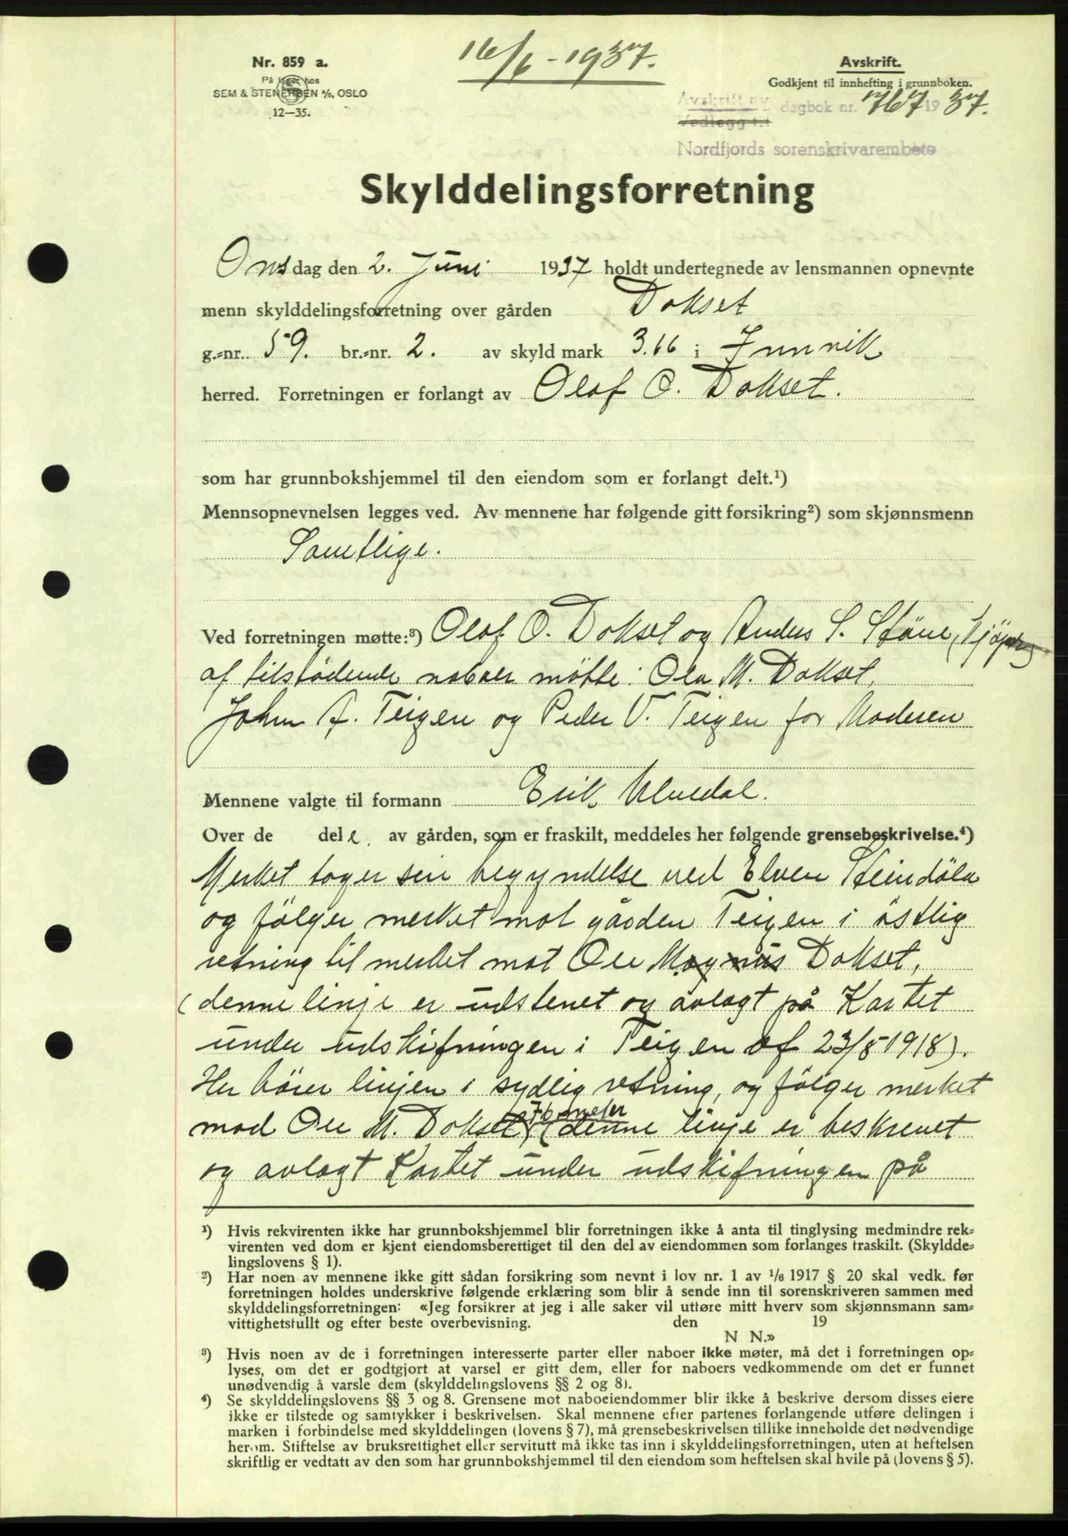 16/6-1937.
Nr. 859 a.
På lager hos
SEM & STENERSEN A/S, OSLO
12—35.
Avskrift.
Godkjent til innhefting i grunnboken.
Avskrift av dagbok nr. 767 1937.
Vedlegg til
Nordfjords sorenskrivarembete
Skylddelingsforretning
Onsdag den 2. Juni 1937 holdt undertegnede av lensmannen opnevnte
menn skylddelingsforretning over gården Dokset
g.-nr. 59. br.-nr. 2. av skyld mark 3.66 i Innvik
herred. Forretningen er forlangt av Olaf O. Dokset.
som har grunnbokshjemmel til den eiendom som er forlangt delt.¹)
Mennsopnevnelsen legges ved. Av mennene har følgende gitt forsikring²) som skjønnsmenn
Samtlige.
Ved forretningen møtte:³) Olaf O. Dokset og Anders S. Støve, (kjøper)
af tilstødende naboer møtte: Ola M. Dokset,
John A. Teigen og Peder V. Teigen for Moderen
Mennene valgte til formann Erik Ulvedal.
Over de dele av gården, som er fraskilt, meddeles her følgende grensebeskrivelse.⁴)
Merket tager sin begyndelse ved Elven Steindøla
og følger merket mot gården Teigen i østlig
retning til merket mot Ole Magnus Dokset,
(denne linje er udstenet og avlagt på Kartet
under udskifningen i Teigen af 23/8-1918).
Her bører linjen i sydlig retning, og følger merket
76 meter
mod Ole M. Dokset, (denne linje er beskrevet
og avlagt Kartet under udskifningen på
¹) Hvis rekvirenten ikke har grunnbokshjemmel blir forretningen ikke å anta til tinglysing medmindre rek-
virenten ved dom er kjent eiendomsberettiget til den del av eiendommen som forlanges fraskilt. (Skyldde-
lingslovens § 1).
²) Har noen av mennene ikke gitt sådan forsikring som nevnt i lov nr. 1 av 1/6 1917 § 20 skal vedk. før
forretningen holdes underskrive følgende erklæring som blir å sende inn til sorenskriveren sammen med
skylddelingsforretningen: «Jeg forsikrer at jeg i alle saker vil utføre mitt hverv som skjønnsmann sam-
vittighetsfullt og efter beste overbevisning. den 19
N N.»
³) Hvis noen av de i forretningen interesserte parter eller naboer ikke møter, må det i forretningen op-
lyses, om det er godtgjort at varsel er gitt dem, eller for naboers vedkommende om det er funnet
unødvendig å varsle dem (skylddelingslovens §§ 2 og 8).
⁴) Se skylddelingslovens §§ 3 og 8. Grensene mot naboeiendommer blir ikke å beskrive dersom disses eiere
ikke er tilstede og samtykker i beskrivelsen. Skal mennene efter partenes forlangende utføre delingen i
marken i forbindelse med skylddelingen (lovens § 7), må grensebeskrivelsen tillike inneholde det nødvendige
herom. Stiftelse av bruksrettighet eller servitutt må ikke tas inn i skylddelingsforretningen, uten at heftelsen
skriftlig er vedtatt av den som har grunnbokshjemmel til den eiendom som heftelsen skal hvile på (lovens § 5).